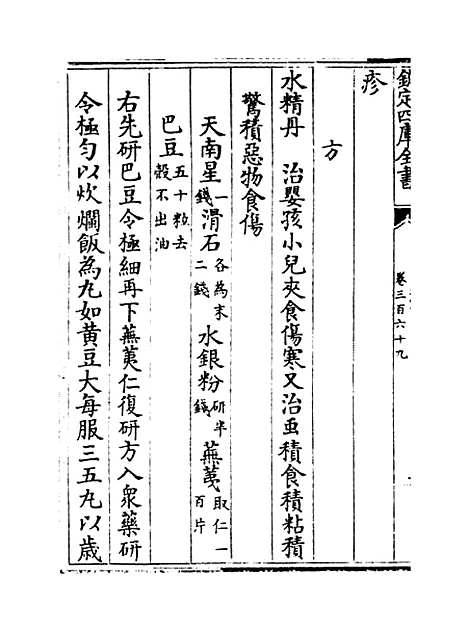 欽定四庫全書
卷三百六十九
疹
方
水精丹　治嬰孩小兒夾食傷寒又治䖝積食積粘積
驚積惡物食傷
天南星一錢滑石各為末二錢水銀粉研半錢蕪荑取仁一百片
巴豆五十粒去殼不出油
右先研巴豆令極細再下蕪荑仁復研方入衆藥研
令極匀以炊爛飯為丸如黄豆大每服三五丸以歳